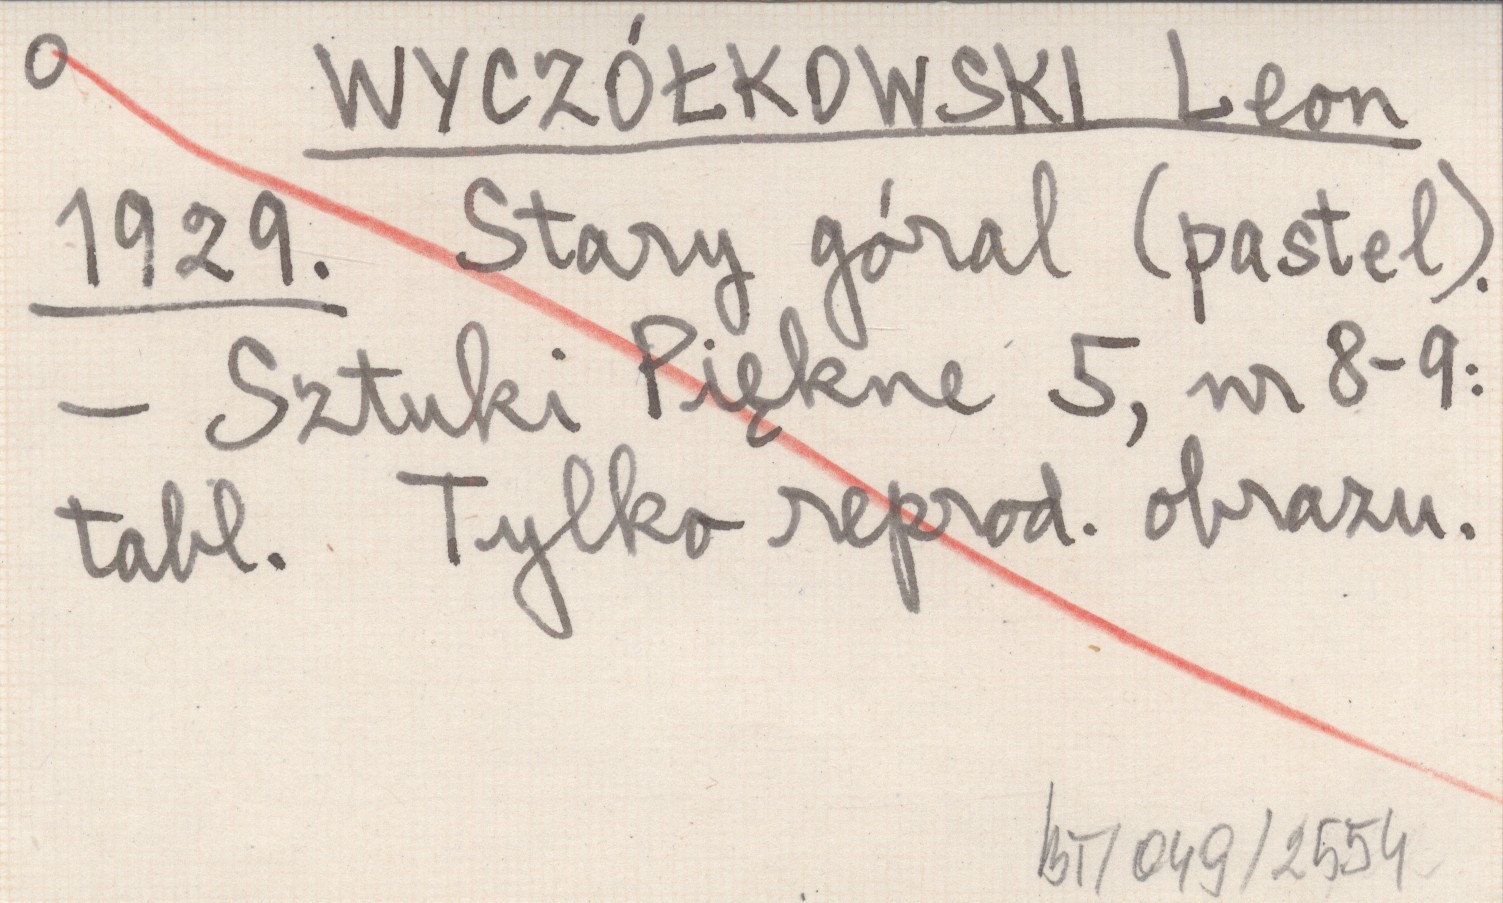 O WYCZÓŁKOWSKI Leon
1929. Stary góral (pastel).
— Sztuki Piękne 5, nr 8-9:
tabl. Tylko reprod. obrazu.
BT/049/2554